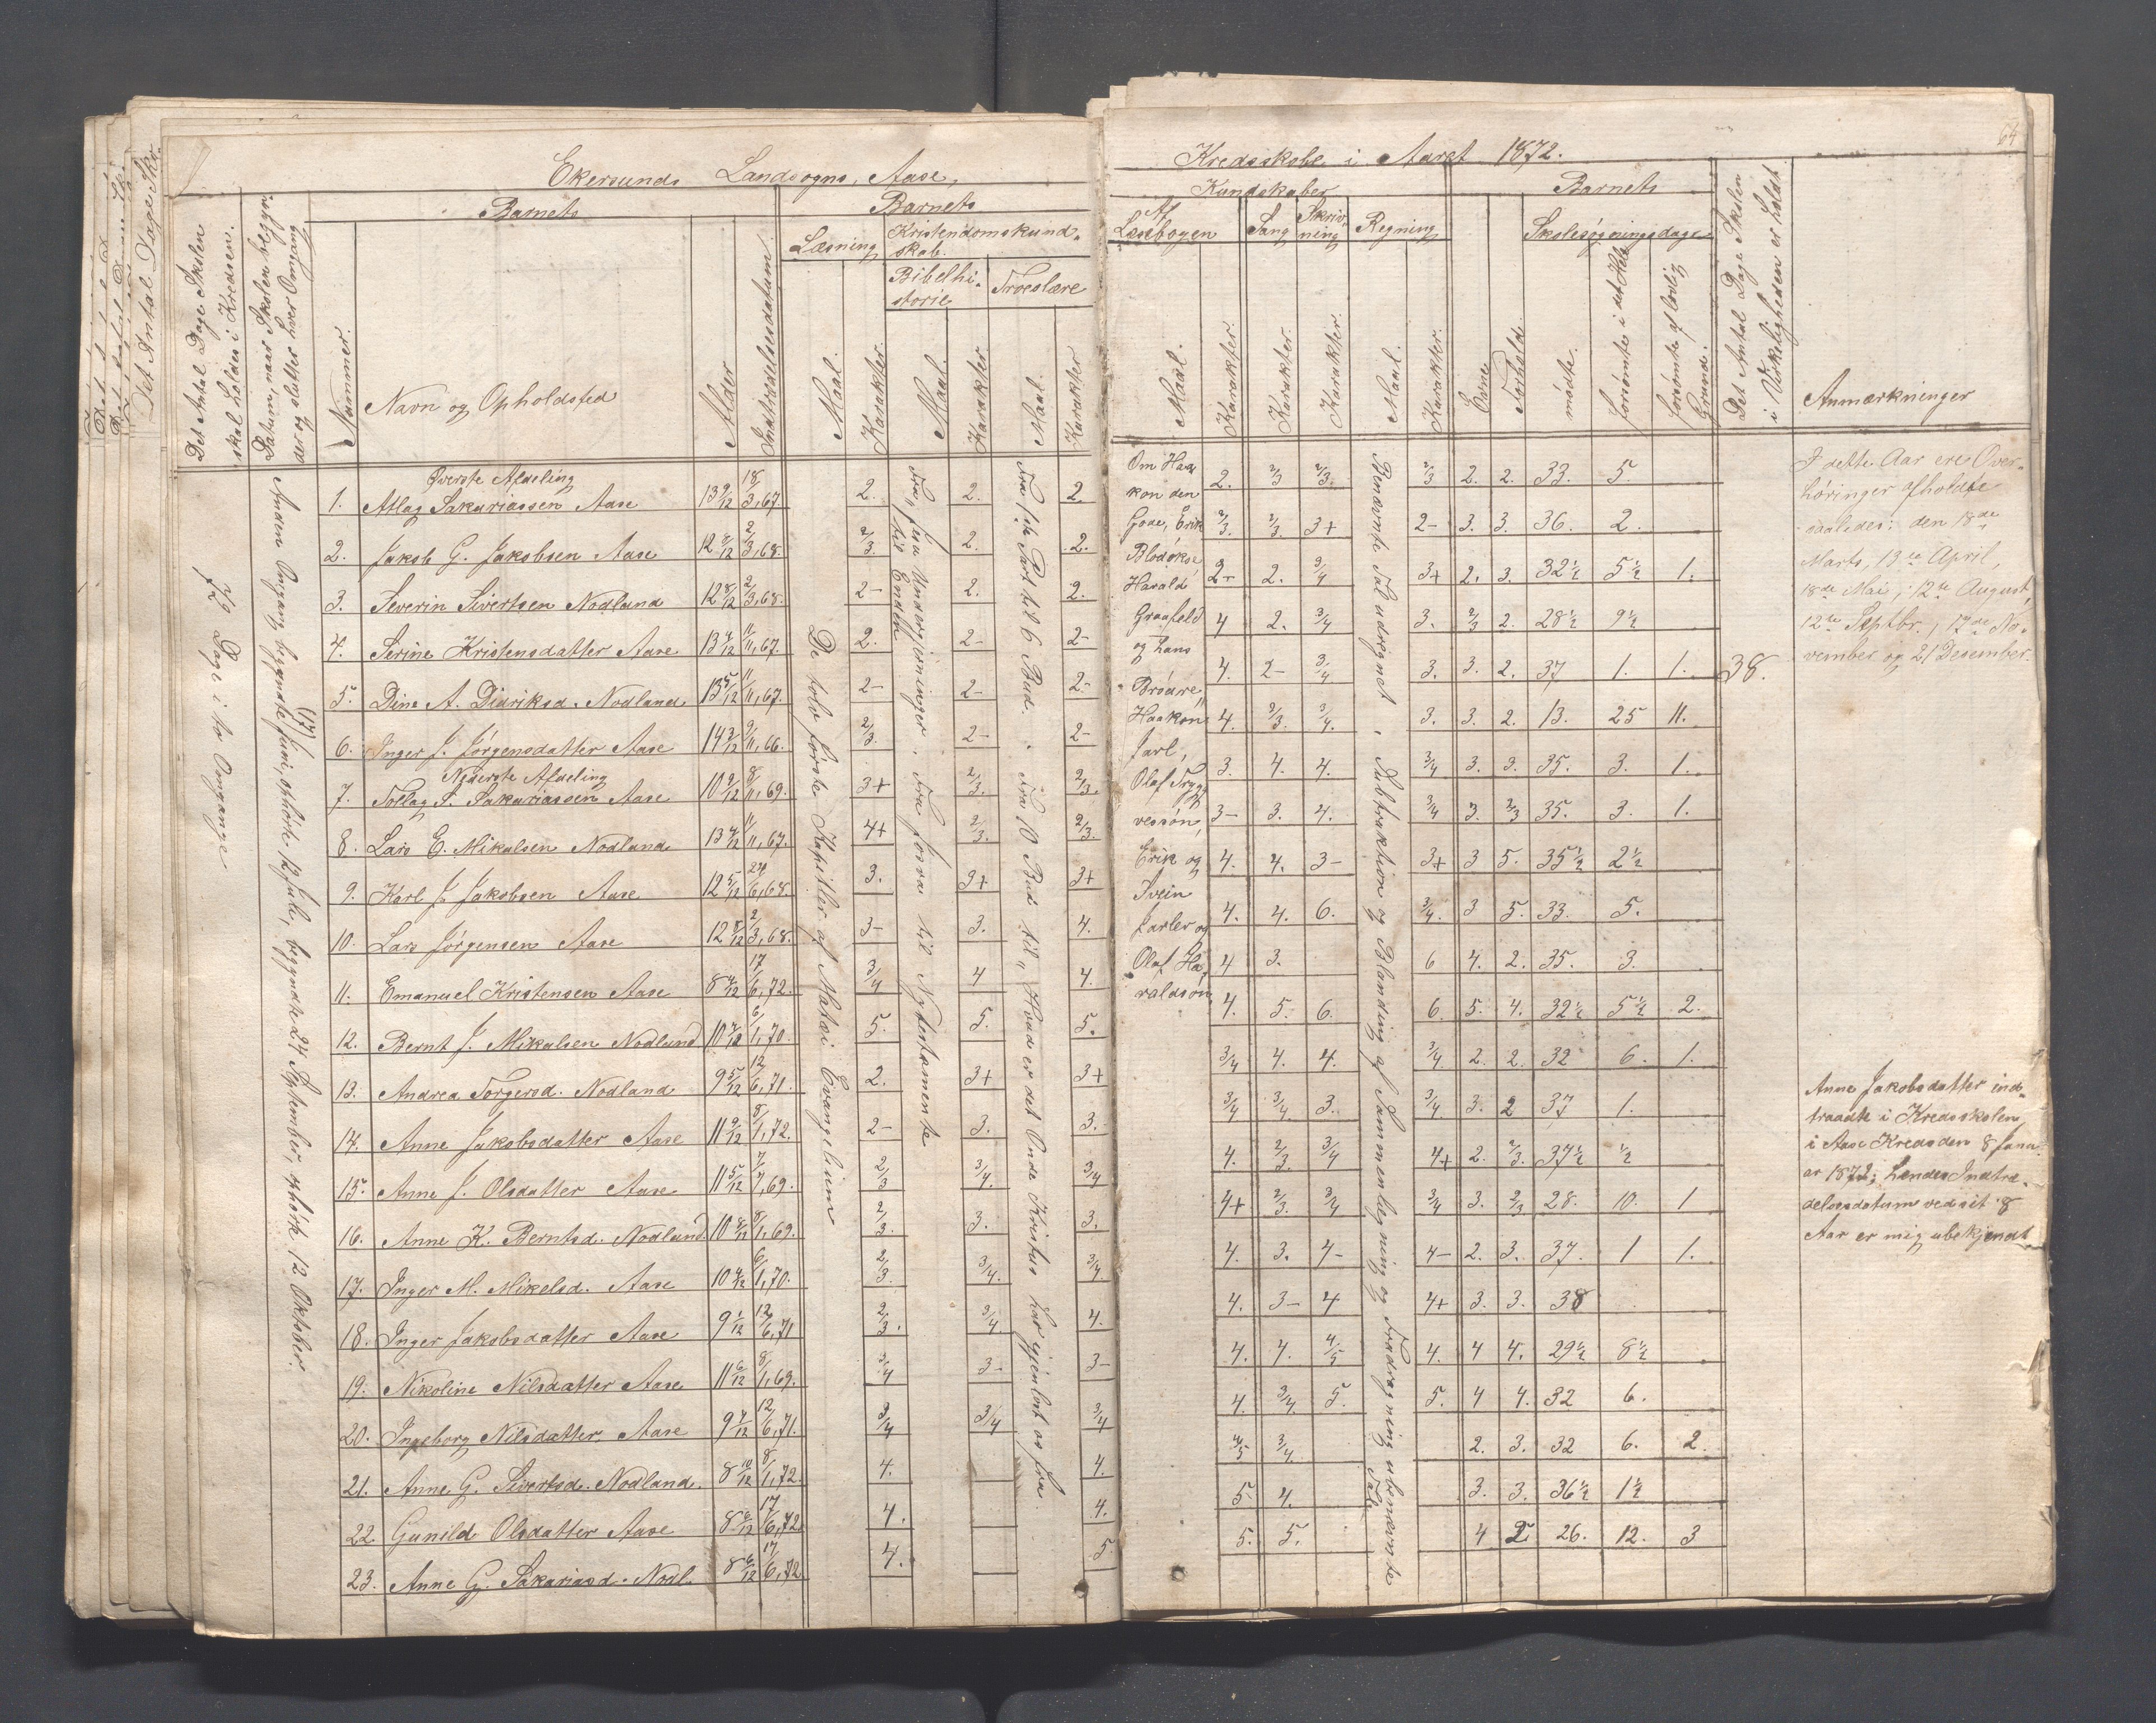 Ekersunds Landsogns, Aase,
Det Antal Dage Skolen
skal holdes i Kredsen.
Datum, naar Skolen begyn-
der og slutter hver Omgang
Barnets
Barnets
Nummer.
Navn og Opholdsted
Alder
Indtrædelsesdatum.
Læsning
Kristendomskund-
skab.
Bibelhi-
storie
Troeslære
Maal.
Karakter.
Maal.
Karakter
Maal.
Karakter
Dage i to Omgange
Anden Omgang begyndte (17) Juni, ophørte 12 Juli, begyndte 24 September, ophørte 12 Oktober.
De tolv første Kapitler af Matæi Evangelium
til Endte
Fra forra til Nytestamente
Fra 1ste Part til 6 Bud. Fra 10 Bud til "Hvad er det Onde Kristus har gjenløst os fra
Øverste Afdeling
1. Atlag Sakariassen Aase 13 9/12 18/3,67. 2. 2. 2.
2. Jakob G. Jakobsen Aase 12 8/12 2/3,68. 2/3. 2. 2.
3. Severin Sivertsen Nodland 12 8/12 2/3,68. 2- 2. 2.
4. Serine Kristensdatter Aase 13 4/12 11/11,67. 2. 2- 2-
5. Dine A. Didriksd. Nodland 13 5/12 11/11,67. 2- 2- 2-
6. Inger J. Jørgensdatter Aase 14 2/12 9/11,66. 2/3. 2- 2-
Nederste Afdeling
7. Tollag S. Sakariassen Aase 10 9/12 8/11,69. 3+ 2/3. 2/3.
8. Lars E. Mikalsen Nodland 13 4/12 11/11,67. 4+ 2/3. 2/3.
9. Karl J. Jakobsen Aase 12 5/12 29/6,68. 3. 3+ 3+
10. Lars Jørgensen Aase 12 8/12 2/3,68. 3- 3. 4.
11. Emanuel Kristensen Aase 8 4/12 17/6,72. 3/4 4 4.
12. Bernt J. Mikalsen Nodland 10 4/12 6/1,70. 5. 5. 5.
13. Andrea Torgersd. Nodland 9 5/12 12/6,71. 2. 3+ 3+
14. Anne Jakobsdatter Aase 11 9/12 8/1,72. 2- 3. 3.
15. Anne J. Olsdatter Aase 11 5/12 7/7,69. 2/3 3/4. 3/4
16. Anne K. Berntsd. Nodland. 10 8/12 8/1,69. 2/3. 3. 3.
17. Inger M. Mikelsd. Aase 10 4/12 6/1,70. 2/3. 3/4. 3/4.
18. Inger Jakobsdatter Aase 9 1/12 12/6,71 2/3. 3/4 4.
19. Nikoline Nilsdatter Aase 11 6/12 8/1,69. 3/4 3- 3-
20. Ingeborg Nilsdatter Aase 9 7/12 12/6,71. 3/4 3/4 3/4
21. Anne G. Sivertsd. Nodland. 8 10/12 8/1,72. 4. 4.
22. Gunild Olsdatter Aase 8 6/12 17/6,72 4. 4.
23. Anne G. Sakariasd. Nodl. 8 6/12 17/6,72 4. 5.
64
Kredsskole i Aaret 1872.
Kundskaber
Barnets
Af
Læsebogen
Sang
Skriv-
ning
Regning
Skolesøgningsdage.
Maal.
Karakter.
Karakter.
Karakter.
Maal.
Karakter.
Evne
Forhold.
mødte.
forsømte i det Hele
forsømte af lovlig
Grund.
Det Antal Dage Skolen
i Virkeligheden er holdt
Anmærkninger
Om Haa
kon den
Gode, Erik
Blodøkse
Harald
Graafeld
og hans
Brødre,
Haakon
Jarl,
Olaf Tryg
vessøn,
Erik og
Svein
Jarler og
Olaf Ha-
raldsøn
Benævnte Tal udregnet. Subtraktion og Blanding af Sammenlægning og Fradragning ubenævnte Tal
2. 2/3 2/3. 2/3 2. 2. 33. 5.
2/3. 2/3. 3+ 2- 3. 3. 36. 2.
2- 2. 3/4 3+ 2. 3. 32½ 5½ 1.
4 2. 3/4 3. 2/3 2. 28½ 9½
4. 2- 3/4 3. 3. 2. 37 1. 1. 38.
4. 2/3. 3/4. 3. 3. 2. 13. 25 11.
3. 4. 4. 3/4 3. 3. 35. 3. 1.
3- 3. 4. 3/4 3. 2/3 35. 3. 1.
4. 4. 3- 3+ 3 5. 35½ 2½
4. 4. 6. 3/4. 3 5. 33. 5.
4 3. 6 4. 2. 35. 3.
4. 5. 6. 6. 5. 4. 32½ 5½ 2.
3/4 4. 4. 3/4 2. 2. 32 6. 1.
3/4 3/4 3. 3/4 3. 2 37 1.
4. 2/3. 3/4 4+ 2. 2/3. 37½ ½
4+ 2/3. 3/4 3/4 3. 2/3 28. 10. 1
4. 3. 4- 4- 2. 3. 37. 1 1.
4. 3- 4 4+ 3. 3. 38
4. 4. 4/5 4. 4 4. 29½ 8½
4. 3/4. 5. 5. 4 4. 32 6.
4/5 3/4. 2. 3. 32 6. 2.
5 4. 3. 3. 36½ 1½
5. 5. 4 26. 12. 3
I dette Aar ere Over-
høringer afholdte
saaledes: den 18de
Marts, 13de April
18de Mai, 12te August,
12te Septbr., 17de No-
vember og 21 Desember.
Anne Jakobsdatter ind-
traadte i Kredsskolen
i Aase Kreds den 8 Janu-
ar 1872; hendes Indtræ-
delsesdatum ved sit 8
Aar er mig ubekjendt